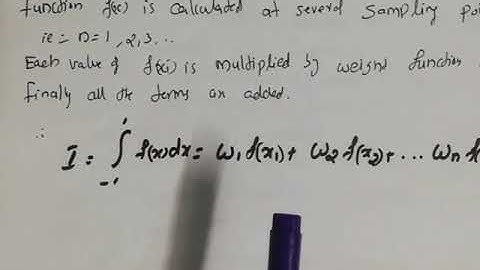 function f(x) is calculated at several Sampling poi
ie = n=1, 2, 3...
Each value of f(xi) is multiplied by weight function
finally all the terms an added.
∴ I = ∫₋₁¹ f(x)dx = ω₁ f(x₁) + ω₂ f(x₂) + ... ωn f